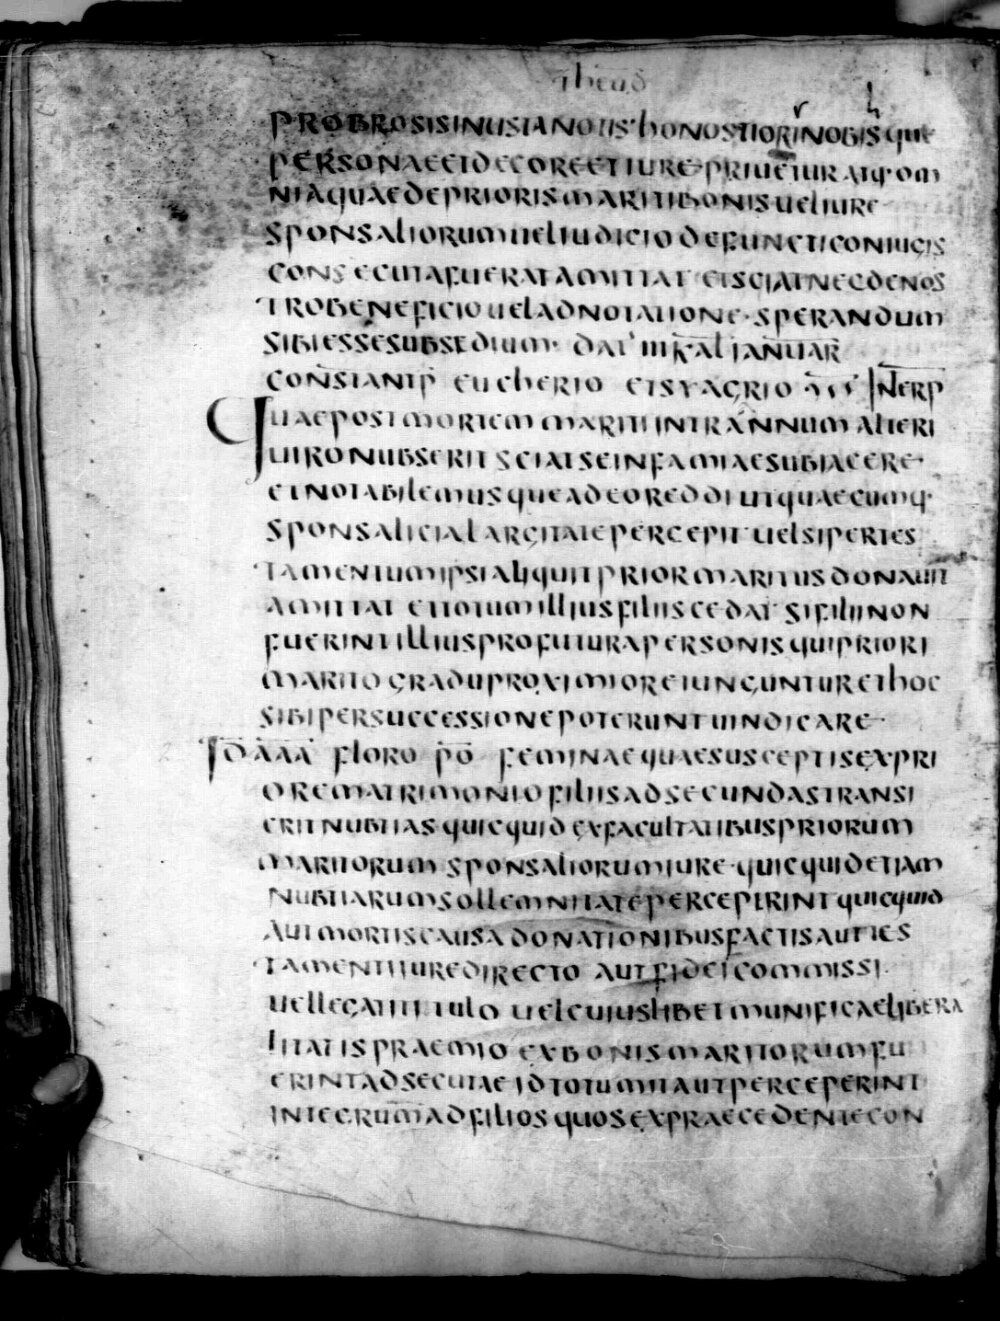 Theud
PROBROSISINUSTANOTIS·hONUSTIORINOBIS que
PERSONAEEIDECOREETIUREPRIUETUR ATQ·OM
NIAQUAEDEPRIORISMARITIBONISUELIURE
SPONSALIORUMUELIUDICIODEFUNCTICONIUGIS
CONSECUTAFUERATAMITTAT ETSCIATNECDENOS
TROBENEFICIOUELADNOTATIONE·SPERANDUM
SIBIESSESUBSEDIUM· DAT IIIKAL IANUAR
CONSTANTIP EUCHERIO ETSYAGRIO INTERP
QUAEPOSTMORTEMMARITIINTRANNUM ALTERI
UIRONUBSERIT SCIATSEINFAMIAESUBIACERE·
ETNOTABILEMUSQUEADEOREDDIUTQUAECUMQ·
SPONSALICIALARGITATEPERCEPIT UELSIPERTES
TAMENTUMIPSIALIQUITPRIORMARITUSDONAUIT
AMITTAT ETTOTUMILLIUSFILIISCEDAT SIFILIINON
FUERINTILLIUSPROFUTURAPERSONIS QUIPRIORI
MARITO GRADUPROXIMIOREIUNGUNTURETHOC
SIBIPERSUCCESSIONEPOTERUNTUINDICARE·
IDAAA FLORO PO FEMINAEQUAESUSCEPTISEXPRI
OREMATRIMONIOFILIISADSECUNDASTRANSI
ERITNUBTIAS QUICQUIDEXFACULTATIBUSPRIORUM
MARITORUM SPONSALIORUMIURE·QUICQUIDETIAM
NUBTIARUMSOLLEMNITATEPERCEPIRINT QUICQUID
AUTMORTISCAUSADONATIONIBUSFACTISAUTTES
TAMENTIIUREDIRECTO AUTFIDEICOMMISSI
UELLEGATITITULO UELCUIUSLIBETMUNIFICAELIBERA
LITATISPRAEMIO EXBONISMARITORUMFU
ERINTADSECUTAE IDTOTUMITAUTPERCEPERINT
INTEGRUMADFILIOSQUOSEXPRAECEDENTECON